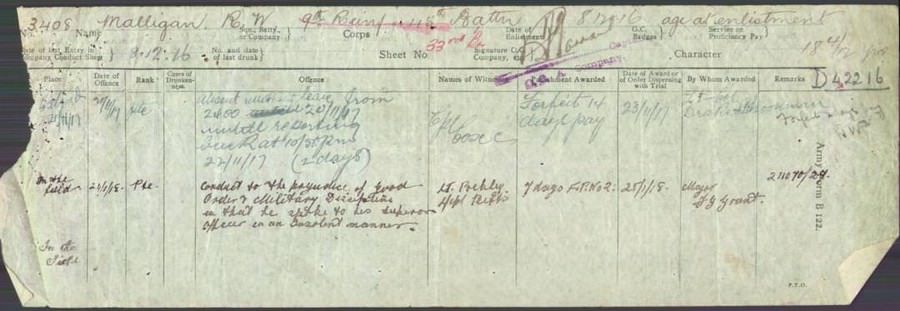 3408 Malligan R. W. 9th Reinf 45th Battn 8/12/16 age at enlistment
33rd Bn
18 4/12 yrs
Name
Sqn., Batty. or Company
Corps
Date of Enlistment
G.C. Badges
Service or Proficiency Pay
Date of last Entry in Company Conduct Sheet 9.12.16
No. and date of last drunk
Sheet No.
Signature O.C. Company
Character
D42216
Place
Date of Offence
Rank
Cases of Drunkenness
Offence
Names of Witnesses
Punishment Awarded
Date of Award or of Order Dispensing with Trial
By Whom Awarded
Remarks
21/11/17 Pte
Absent without leave from
2100 20/11/17
until reporting
back at 10/30 pm
22/11/17 (2 days)
Forfeit 14
days pay
23/11/17
In the
field
24/1/18. Pte.
Conduct to the prejudice of Good
Order & Military Discipline
in that he spoke to his superior
officer in an insolent manner.
7 days F.P. No 2.
25/1/18.
Major
Grant.
In the
Field
Army Form B 122.
P.T.O.